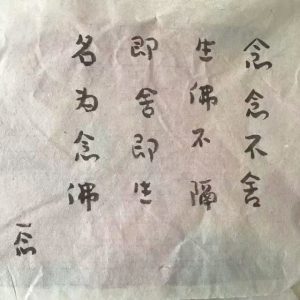 念念不舍
生佛不隔
即舍即生
名为念佛